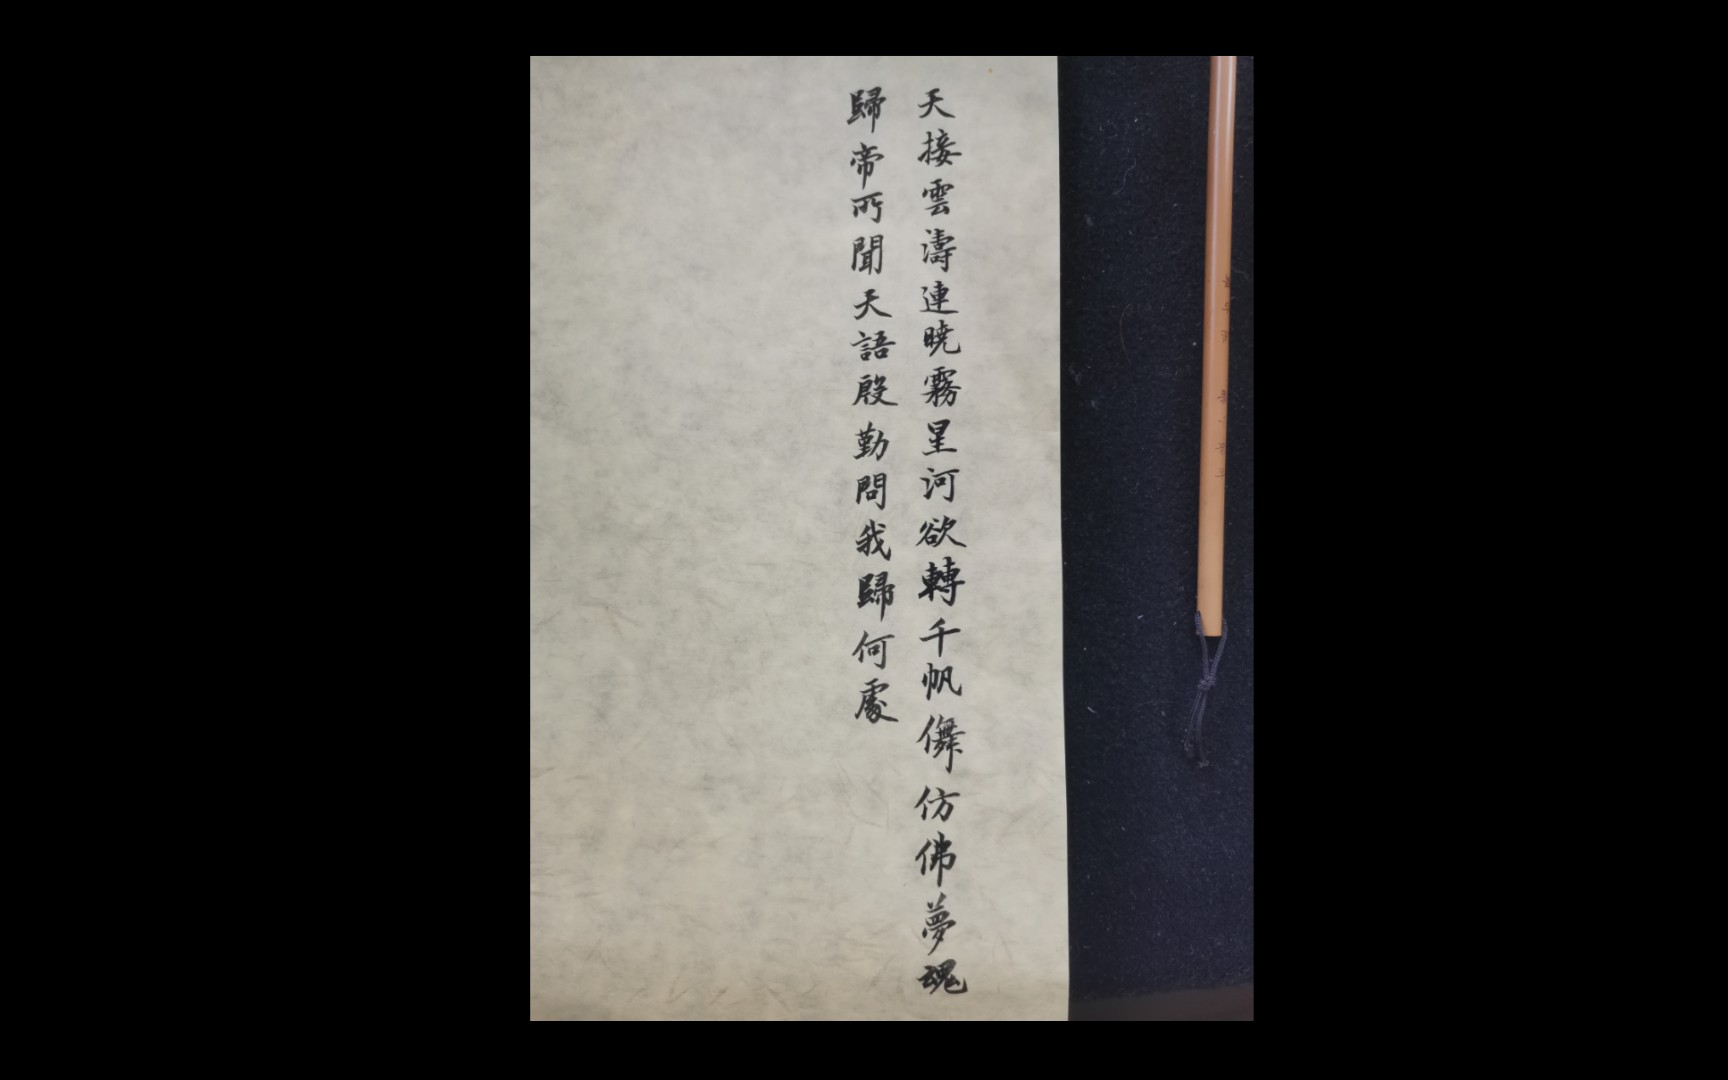 天接雲濤連曉霧星河欲轉千帆儛仿佛夢魂
歸帝所聞天語殷勤問我歸何處